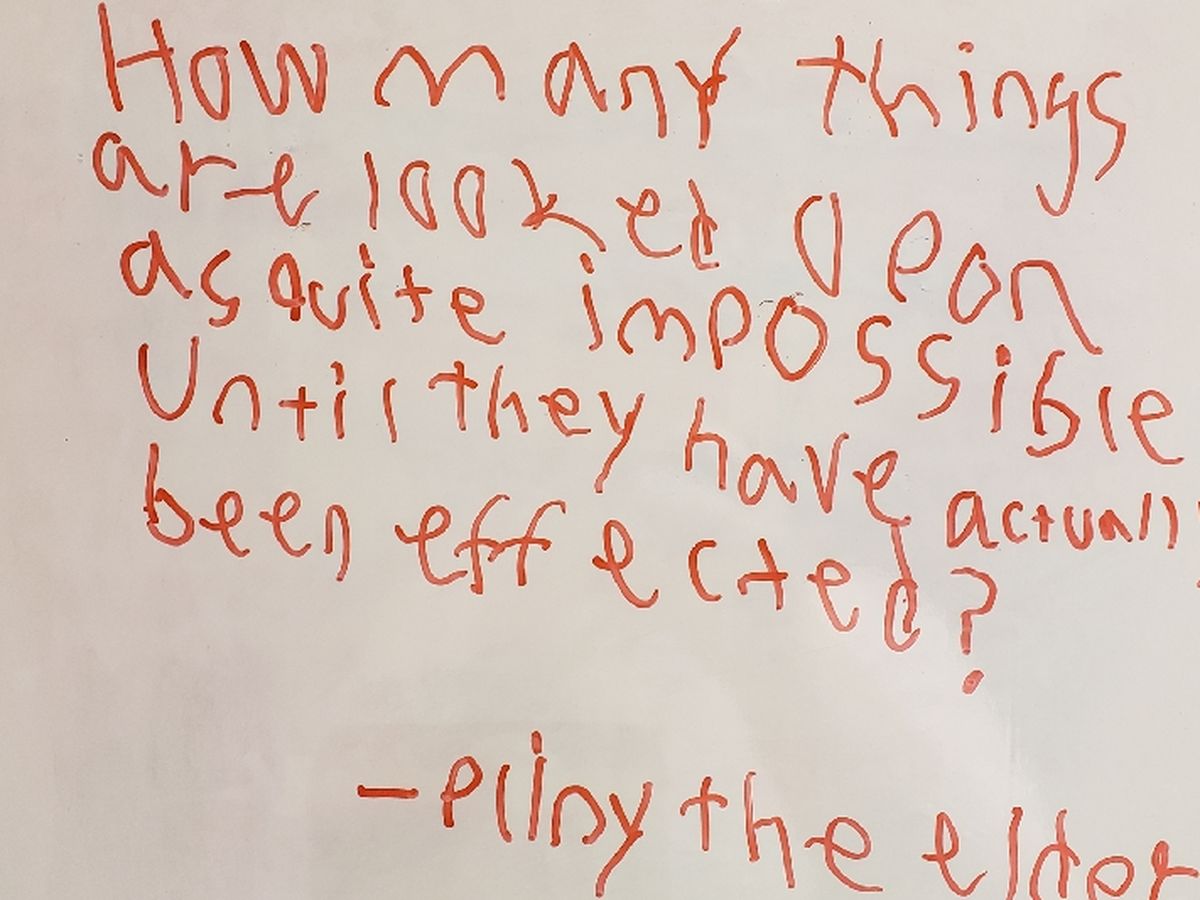 How many things
are looked upon
as quite impossible
Until they have actually
been effected?
- Pliny the elder